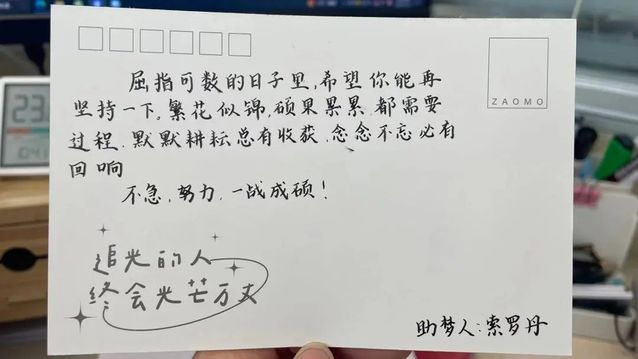 ZAOMO
屈指可数的日子里,希望你能再
坚持一下。繁花似锦,硕果累累.都需要
过程.默默耕耘总有收获.念念不忘必有
回响
不急.努力.一战成硕!
追光的人
终会光芒万丈
助梦人:索罗丹